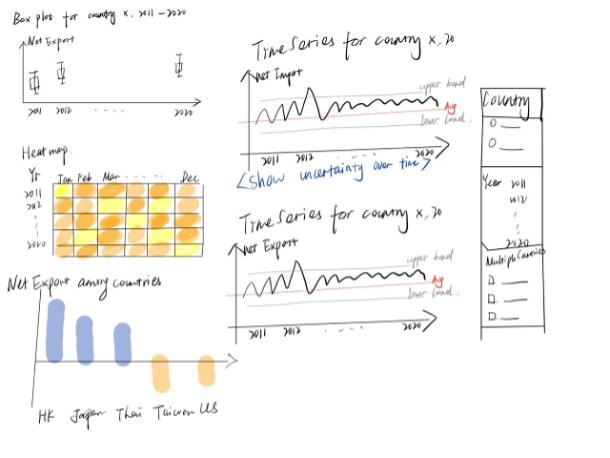 Box plot for country X, 2011-2020
Net Export
2011 2012 ..... 2020
Heat map.
Yr
Jan Feb Mar ..... Dec
2011
2012
2020
Net Export among countries
HK Japan Thai Taiwan US
Time Series for country X, 20
Net Import
upper band
Avg
Lower band.
2011 2012 .... 2020
<Show uncertainty over time>
Time Series for country X, 20
Net Export
upper band
Avg
Lower band.
2011 2012 .... 2020
Country
Year 2011
2012
2020
Multiple Countries